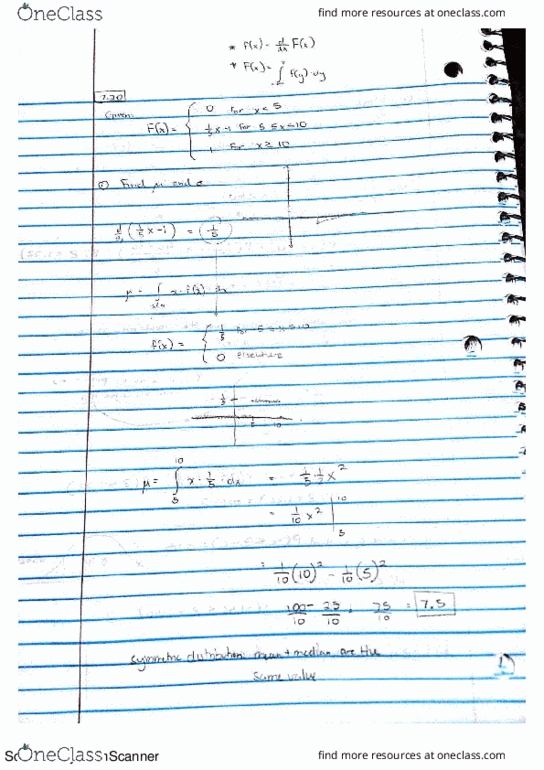 OneClass
find more resources at oneclass.com
* f(x) = d/dx F(x)
* F(x) = ∫ f(y) dy
7.20
Given:
F(x) = { 0 for x < 5
1/5 x - 1 for 5 ≤ x < 10
1 for x ≥ 10
Find μ and σ
d/dx (1/5 x - 1) = (1/5)
μ = ∫ x · f(x) dx
f(x) = { 1/5 for 5 ≤ x ≤ 10
0 elsewhere
1/5
5 10
μ = ∫ 5 10 x · 1/5 · dx = 1/5 1/2 x²
= 1/10 x² | 10 5
= 1/10 (10)² - 1/10 (5)²
100/10 - 25/10 = 75/10 = 7.5
symmetric distribution mean + median are the
same value
OneClass
Scanner
find more resources at oneclass.com